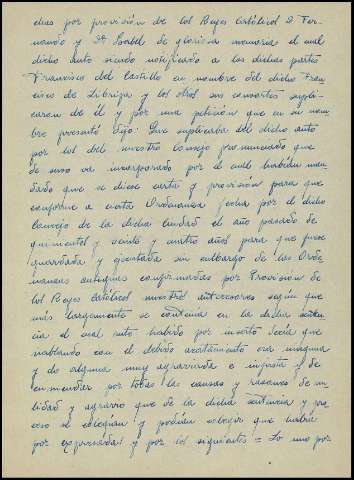 das por provisión de los Reyes Católicos D. Fer-
nando y Dª Isabel de gloriosa memoria el cual
dicho auto siendo notificado a las dichas partes
Francisco del Castillo en nombre del dicho Fran-
cisco de Librija y los otros sus consortes supli-
caron de él y por una petición que en su nom-
bre presentó dijo: Que suplicaba del dicho auto
por los del nuestro Consejo pronunciado que
de suso va incorporado por el cual habían man-
dado que se diese carta y provisión para que
conforme a cierta Ordenanza fecha por el dicho
Concejo de la dicha Ciudad el año pasado de
quinientos y veinte y cuatro años para que fuese
guardada y ejecutada sin embargo de las Orde-
nanzas antiguas confirmadas por Provisión de
los Reyes Católicos nuestros antecesores según que
más largamente se contenía en la dicha senten-
cia el cual auto habido por inserto decía que
hablando con el debido acatamiento era ninguna
y do alguna muy agraviada e injusta y de
enmendar por todas las causas y razones de nu-
lidad y agravio que de la dicha sentencia y pro-
ceso se colegían y podían colegir que había
por expresadas y por las siguientes = Lo uno por